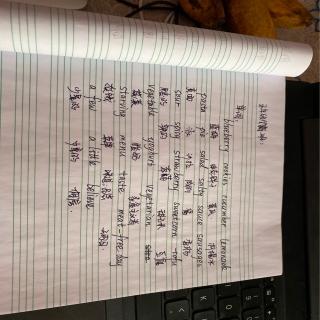 单词
blueberry cookies cucumber lemonade
蓝莓 黄瓜
pasta pie salad salty sauce sausages
sour spicy strawberry sweetcorn tofu
酸的 辣的 草莓 甜玉米 豆腐
vegetable yoghurt vegetarian
蔬菜 酸奶
starving menu taste meat-free day
菜单
a few a little believe
少量的 少量的 相信